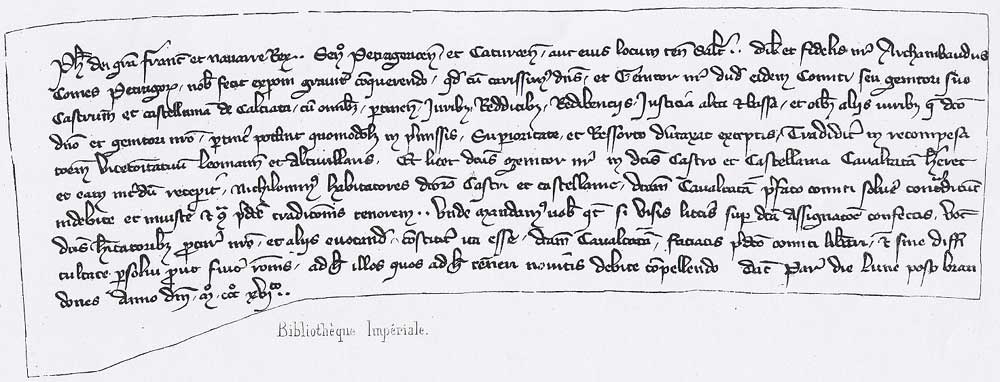 Ph̃ dei gr̃a Franc̃ et navarre Rex.. Sen̄ Petragoricen̄ et Caturcen̄, aut eius locum ten̄ salt̃.. dil̃ et fidelis nr̃ Archambaudus
Comes Petragor̃, nob̃ fecit exponi graviṫ cōquerendo, qd̃ cũ carissim̃ dn̄s, et Genitor nr̃ dud̃ eidem Comiti seu genitori suo
Castrum et castellaniã de Calciata, cũ omib̃z, ptinen̄, Iurib̃z, Reddit̃ib̃z, Redibenciis, Iusticia alta et bassa, et oib̃z aliis iurib̃z q̃ dc̃o
dn̄o et genitori nr̃o, ptin̄e potãnt quomodolb̃z in p̃missis, Superioritate, et Ressorto dũtaxat exceptis, Tradidit̃ in recompesa
toem̃ Vicecoitatuũ Leomanie et Altivillaris, Et licet dc̃us genitor nr̃ in dc̃is Castro et Castellania Cavalcatã h̃eret
et eam int̃dũ recepit̃, Nichilomin̄ habitatores dc̃orõ Castri et castellanie, dc̃am Cavalcatã p̃fato comiti solvẽ cont̃dicũt
indebite et iniuste et q̃ p̃dc̃e tradicionis tenorem.. Unde mandam̃ vob̃ qt̃ si visis litt̃is sup̃ dc̃a Assignatoẽ confectis, Voc̃
dc̃is h̃itatorib̃z p̃curẽ nr̃o, et aliis evocand̃, cõstitit̃ ita esse, dc̃am Cavalcatã, faciatis p̃dc̃o comiti lib̃ari, et sine diffi
cultate p̃solvi p̃ut fueṫ r̃onis, ad h̃ illos quos ad h̃ tẽneri noveritis debite cõpellendo dat̃ Par̃ die Lune post bran
dones Anno dn̄i, m̊, ccc̊ xvi^to..
Bibliothèque Impériale.